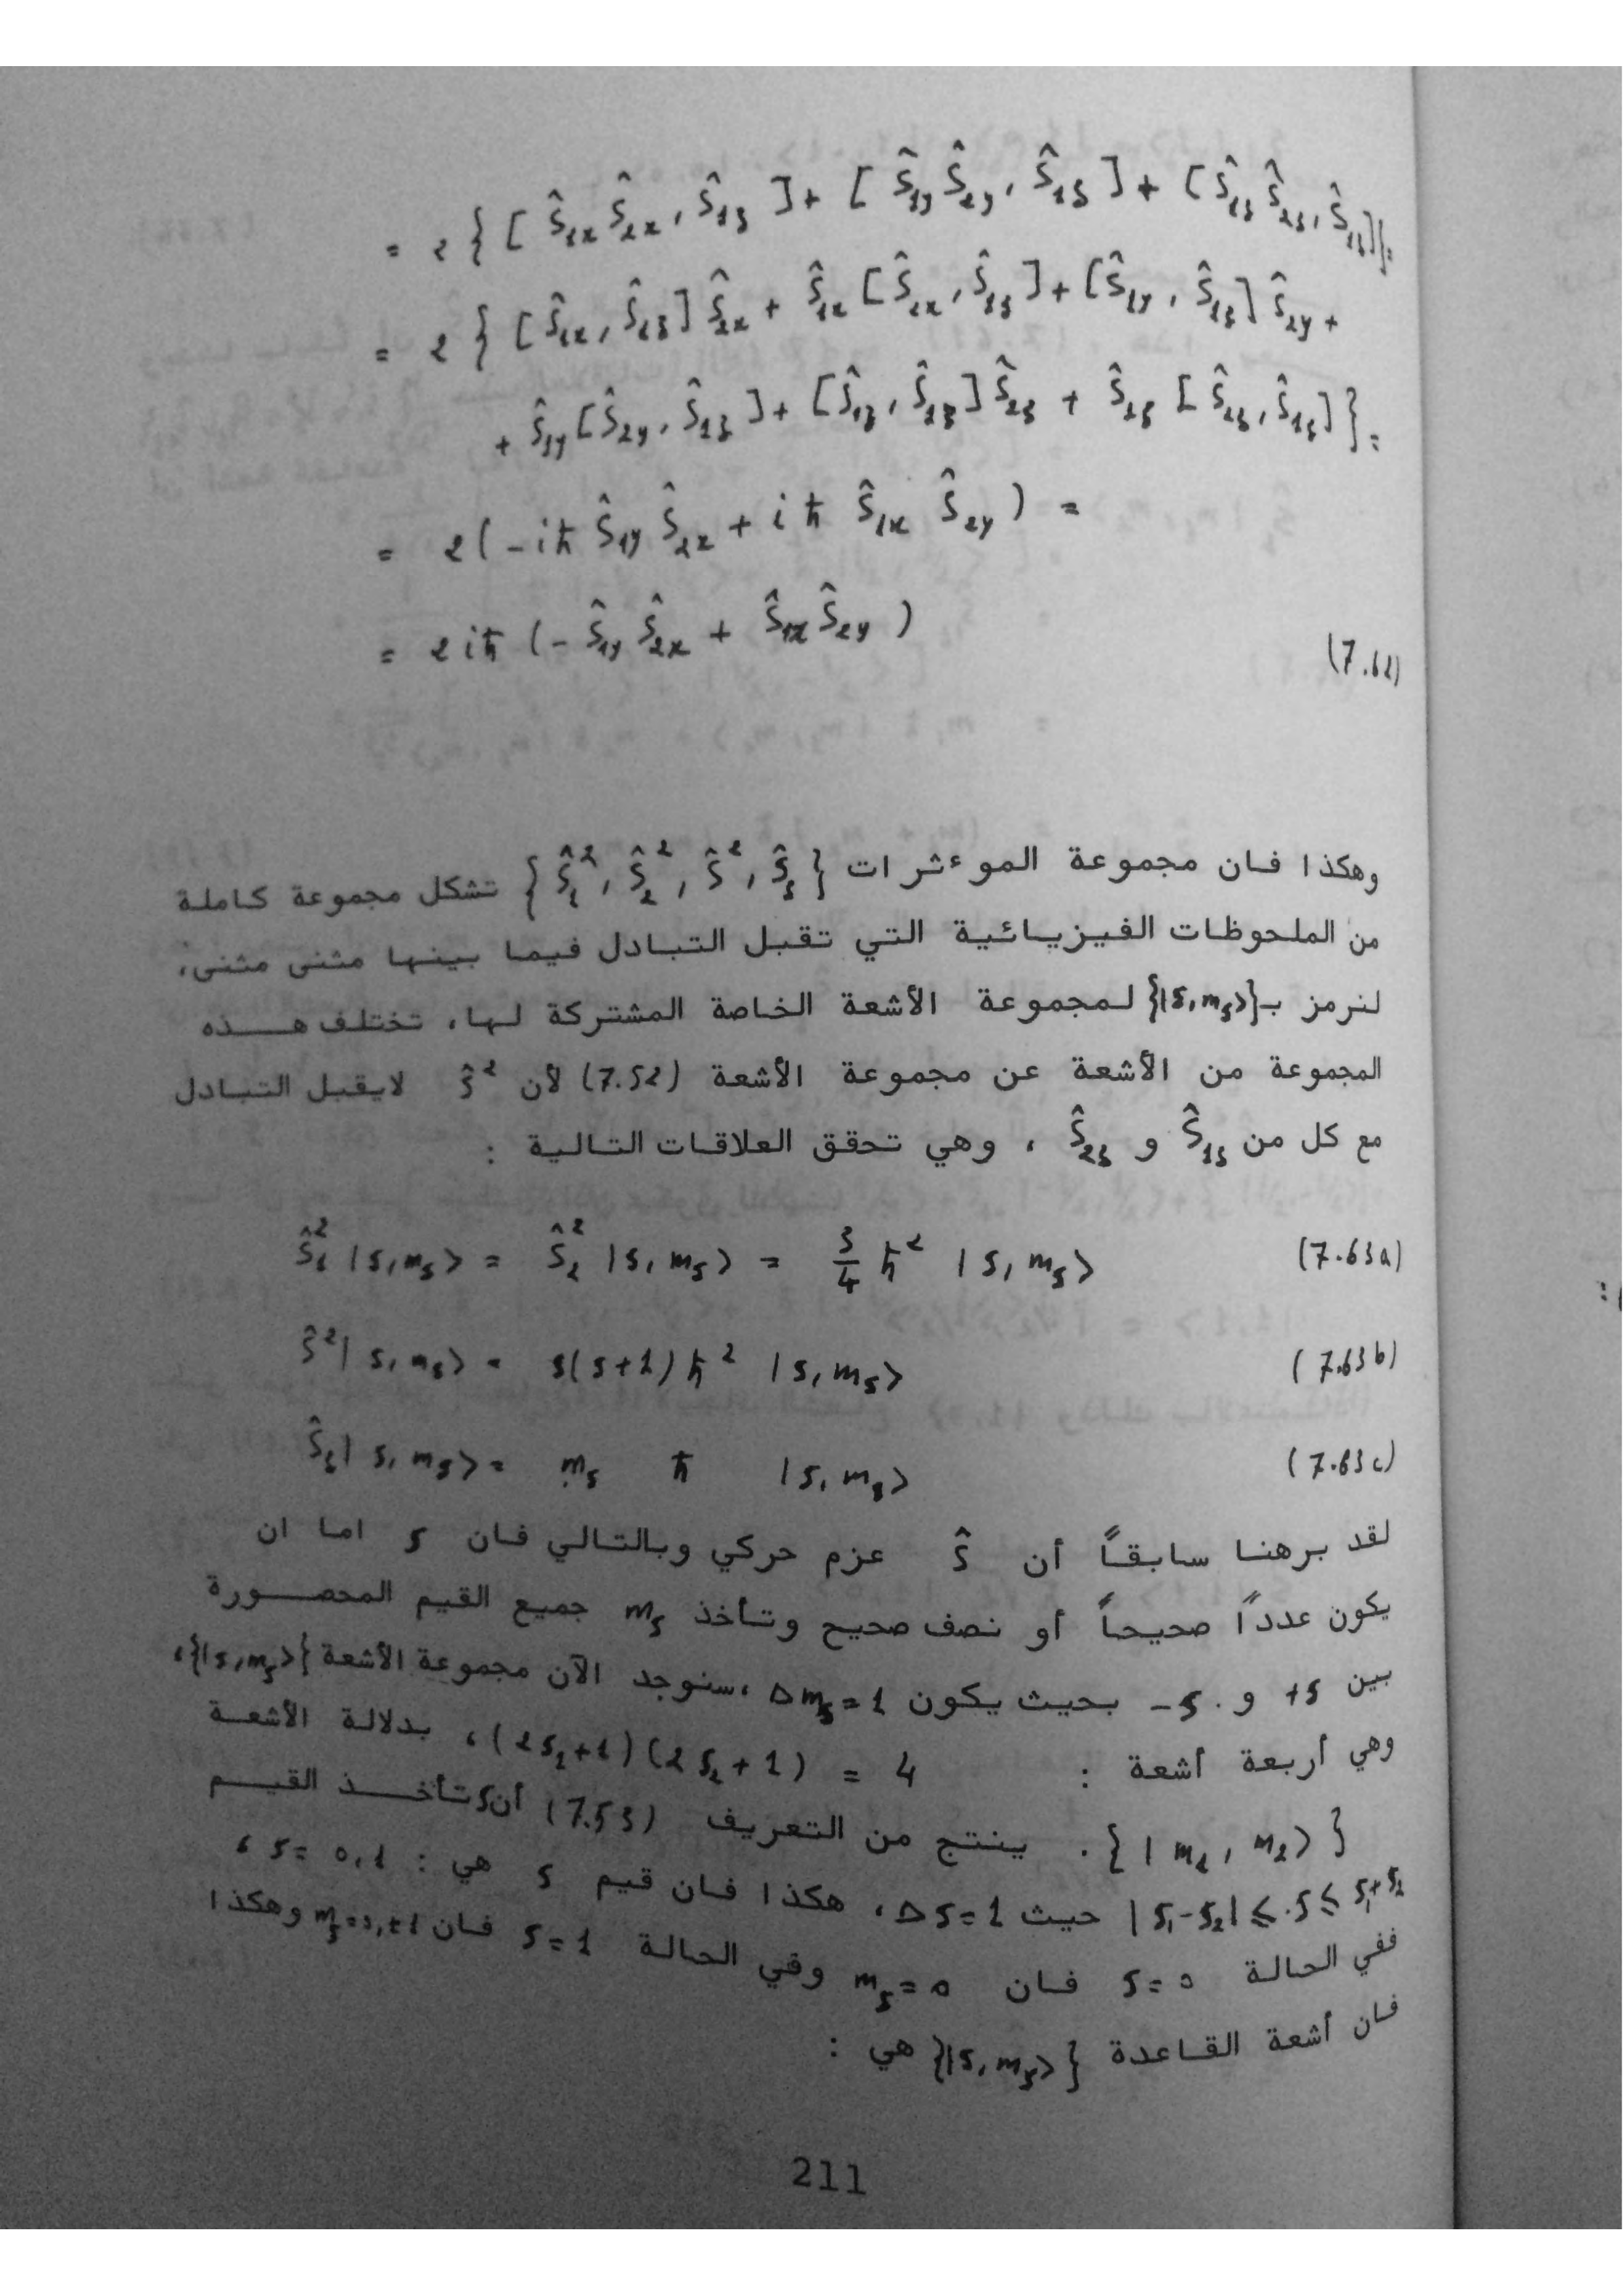 = 2 { [ Ŝ₁ₓ Ŝ₂ₓ , Ŝ₁z ] + [ Ŝ₁y Ŝ₂y , Ŝ₁z ] + [ Ŝ₁z Ŝ₂z , Ŝ₁z ] } =
= 2 { [ Ŝ₁ₓ , Ŝ₁z ] Ŝ₂ₓ + Ŝ₁ₓ [ Ŝ₂ₓ , Ŝ₁z ] + [ Ŝ₁y , Ŝ₁z ] Ŝ₂y +
+ Ŝ₁y [ Ŝ₂y , Ŝ₁z ] + [ Ŝ₁z , Ŝ₁z ] Ŝ₂z + Ŝ₁z [ Ŝ₂z , Ŝ₁z ] } =
= 2 ( -iħ Ŝ₁y Ŝ₂ₓ + iħ Ŝ₁ₓ Ŝ₂y ) =
= 2iħ ( - Ŝ₁y Ŝ₂ₓ + Ŝ₁ₓ Ŝ₂y ) (7.62)
وهكذا فان مجموعة الموءثرات { Ŝ₁² , Ŝ₂² , Ŝ² , Ŝz } تشكل مجموعة كاملة
من الملحوظات الفيزيائية التي تقبل التبادل فيما بينها مثنى مثنى،
لنرمز بـ {|s,mₛ>} لمجموعة الأشعة الخاصة المشتركة لها، تختلف هذه
المجموعة من الأشعة عن مجموعة الأشعة (7.52) لأن Ŝ² لايقبل التبادل
مع كل من Ŝ₁z و Ŝ₂z ، وهي تحقق العلاقات التالية :
Ŝ₁² |s,mₛ> = Ŝ₂² |s,mₛ> = 3/4 ħ² |s,mₛ> (7.63a)
Ŝ² |s,mₛ> = s(s+1) ħ² |s,mₛ> (7.63b)
Ŝz |s,mₛ> = mₛ ħ |s,mₛ> (7.63c)
لقد برهنا سابقاً أن Ŝ عزم حركي وبالتالي فان s اما ان
يكون عدداً صحيحاً أو نصف صحيح وتأخذ mₛ جميع القيم المحصورة
بين +s و -s بحيث يكون Δmₛ = 1 ،سنوجد الآن مجموعة الأشعة {|s,mₛ>}،
وهي أربعة أشعة : (2s₁+1)(2s₂+1) = 4 ، بدلالة الأشعة
{ |m₁ , m₂> } . ينتج من التعريف (7.53) أن s تأخذ القيم
|s₁-s₂| ≤ s ≤ s₁+s₂ حيث Δs=1 ، هكذا فان قيم s هي : s = 0,1 ،
ففي الحالة s = 0 فان mₛ = 0 وفي الحالة s = 1 فان mₛ=0,±1 وهكذا
فان أشعة القاعدة {|s,mₛ>} هي :
211